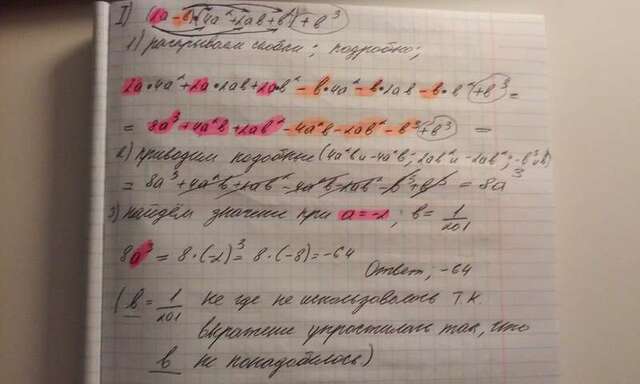 I) (2a-в)(4a²+2ab+в²)+в³
1) раскрываем скобки; подробно;
2a·4a²+2a·2ab+2a·в²-в·4a²-в·2ab-в·в²+в³=
=8a³+4a²в+2aв²-4a²в-2aв²-в³+в³ =
2) приводим подобные (4a²в и -4a²в; 2aв² и -2aв²; -в³ и в³)
=8a³+4a²в+2aв²-4a²в-2aв²-в³+в³=8a³
3) найдём значение при a=-2; в=1/201
8a³=8·(-2)³=8·(-8)=-64
Ответ; -64
(в=1/201 не где не использовалось т.к.
выражение упростилось так, что
в не понадобилось)